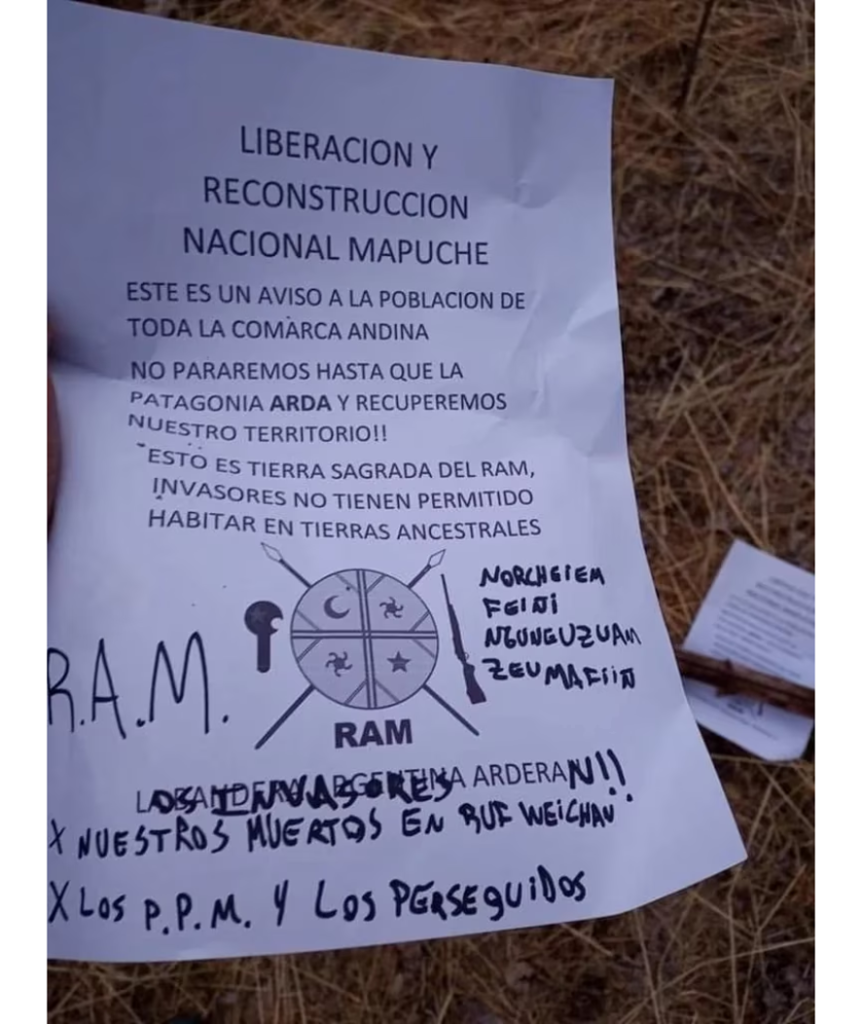 LIBERACION Y
RECONSTRUCCION
NACIONAL MAPUCHE
ESTE ES UN AVISO A LA POBLACION DE
TODA LA COMARCA ANDINA
NO PARAREMOS HASTA QUE LA
PATAGONIA ARDA Y RECUPEREMOS
NUESTRO TERRITORIO!!
ESTO ES TIERRA SAGRADA DEL RAM,
INVASORES NO TIENEN PERMITIDO
HABITAR EN TIERRAS ANCESTRALES
NORCHEIEM
FEIÑI
NGUNGUZUAM
ZEUMAFIIÑ
R.A.M.
RAM
LOS INVASORES ARDERAN!!
X NUESTROS MUERTOS EN WEICHAN
X LOS P.P.M. Y LOS PERSEGUIDOS